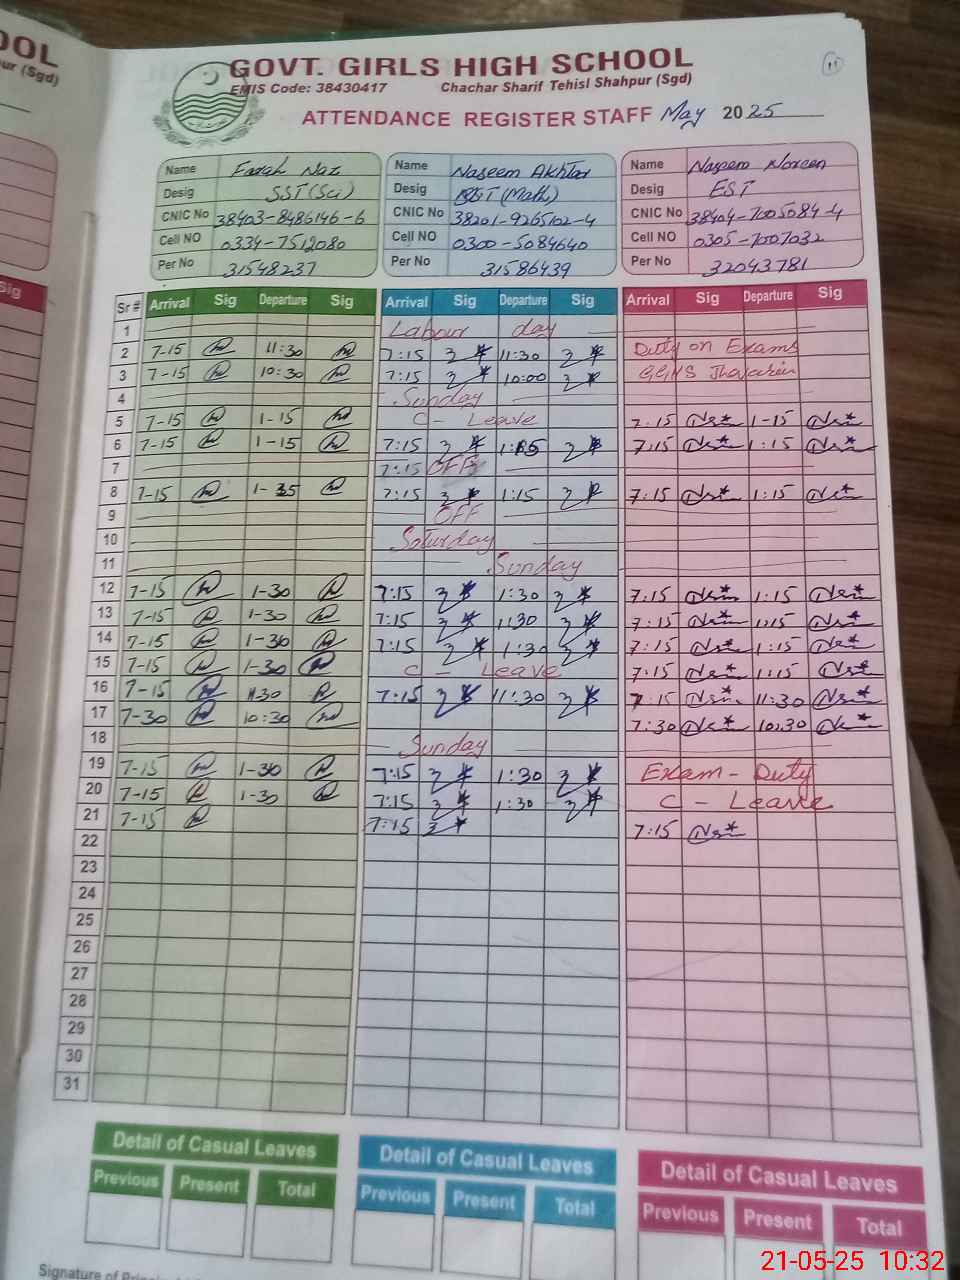 OOL
pur (Sgd)
Sig
GOVT. GIRLS HIGH SCHOOL
11
EMIS Code: 38430417 Chachar Sharif Tehisl Shahpur (Sgd)
ATTENDANCE REGISTER STAFF May 2025
Name Farah Naz Name Naseem Akhtar Name Naseem Noreen
Desig SST (Sci) Desig (Math) Desig EST
CNIC No 38403-8486146-6 CNIC No 38201-9265102-4 CNIC No 38404-7005084-4
Cell NO 0334-7512080 Cell NO 0300-5084640 Cell NO 0305-7007032
Per No 31548237 Per No 31586439 Per No 32043781
Sr # Arrival Sig Departure Sig Arrival Sig Departure Sig Arrival Sig Departure Sig
1 Labour day
2 7-15 11:30 7:15 11:30 Duty on Exams
3 7-15 10:30 7:15 10:00 GGHS Jhavarian
4 Sunday
5 7-15 1-15 C - Leave 7:15 1-15
6 7-15 1-15 7:15 1:15 7:15 1:15
7 7:15 OFF
8 7-15 1-35 7:15 1:15 7:15 1:15
9 OFF
10 Saturday
11 Sunday
12 7-15 1-30 7:15 1:30 7:15 1:15
13 7-15 1-30 7:15 1:30 7:15 1:15
14 7-15 1-30 7:15 1:30 7:15 1:15
15 7-15 1-30 C - Leave 7:15 1:15
16 7-15 11:30 7:15 11:30 7:15 11:30
17 7-30 10:30 7:30 10:30
18 Sunday
19 7-15 1-30 7:15 1:30 Exam - Duty
20 7-15 1-30 7:15 1:30 C - Leave
21 7-15 7:15 7:15
22
23
24
25
26
27
28
29
30
31
Detail of Casual Leaves Detail of Casual Leaves Detail of Casual Leaves
Previous Present Total Previous Present Total Previous Present Total
Signature of
21-05-25 10:32